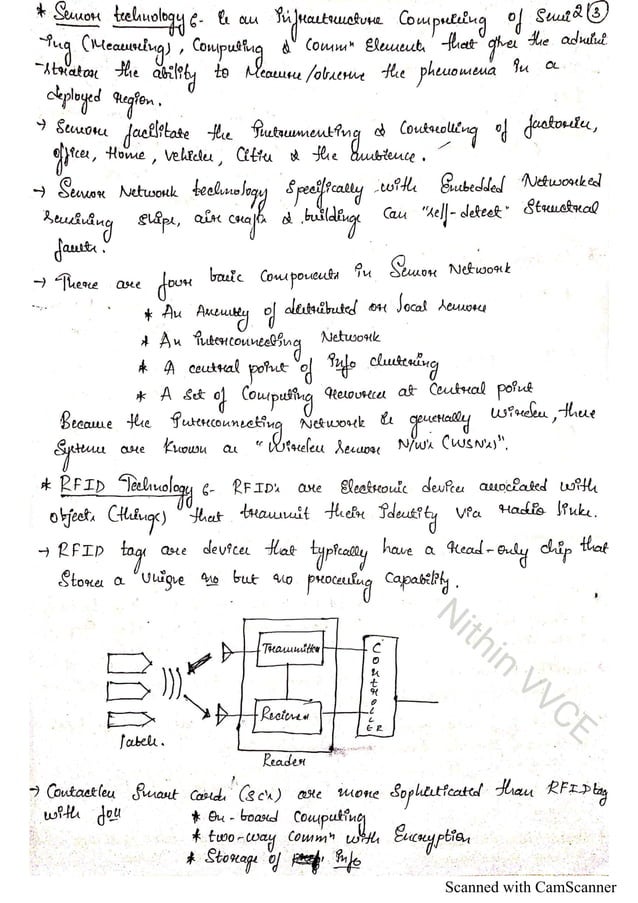 * Sensor technology :- is an Infrastructure Comprising of Sensi 2 (3)
-ing (Measuring), Computing & Commn Elements that gives the admini
-strator the ability to Measure/observe the phenomena in a
deployed region.
→ Sensors facilitate the Instrumenting & Controlling of factories,
offices, Home, vehicles, Cities & the ambience.
→ Sensor Network technology Specifically with Embedded Networked
Sensing ships, air craft & buildings Can "self-detect" Structural
faults.
→ There are four basic Components in Sensor Network
* An Assembly of distributed or local Sensors
* An interconnecting Network
* A central point of Info clustering
* A Set of Computing resources at Central point
Because the Interconnecting Network is generally Wireless, these
Systems are known as "Wireless Sensor N/w's (WSN's)".
* RFID Technology :- RFID's are Electronic devices associated with
objects (things) that transmit their Identity via radio links.
→ RFID tags are devices that typically have a read-only chip that
Stores a Unique no but no processing Capability.
Transmitter
Reciever
CONTROLLER
labels.
Reader
→ Contactless Smart Cards (SC's) are more Sophisticated than RFID tag
with
* on-board Computing
* two-way Commn with Encryption
* Storage of Info
Nithin VVCE
Scanned with CamScanner